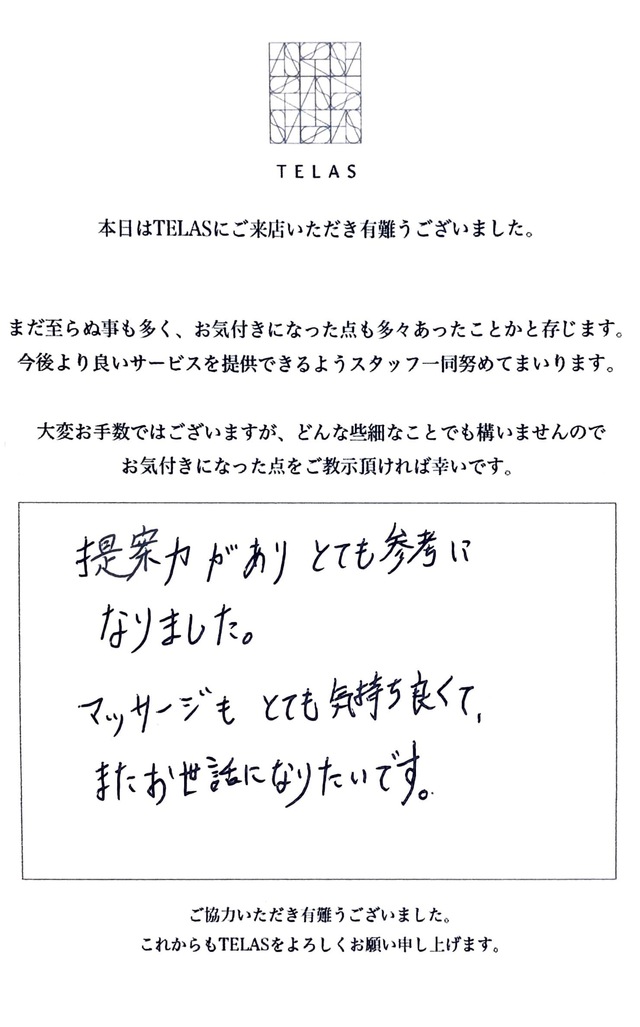 TELAS
本日はTELASにご来店いただき有難うございました。
まだ至らぬ事も多く、お気付きになった点も多々あったことかと存じます。
今後より良いサービスを提供できるようスタッフ一同努めてまいります。
大変お手数ではございますが、どんな些細なことでも構いませんので
お気付きになった点をご教示頂ければ幸いです。
提案力があり とても参考に
なりました。
マッサージも とても気持ち良くて、
またお世話になりたいです。
ご協力いただき有難うございました。
これからもTELASをよろしくお願い申し上げます。